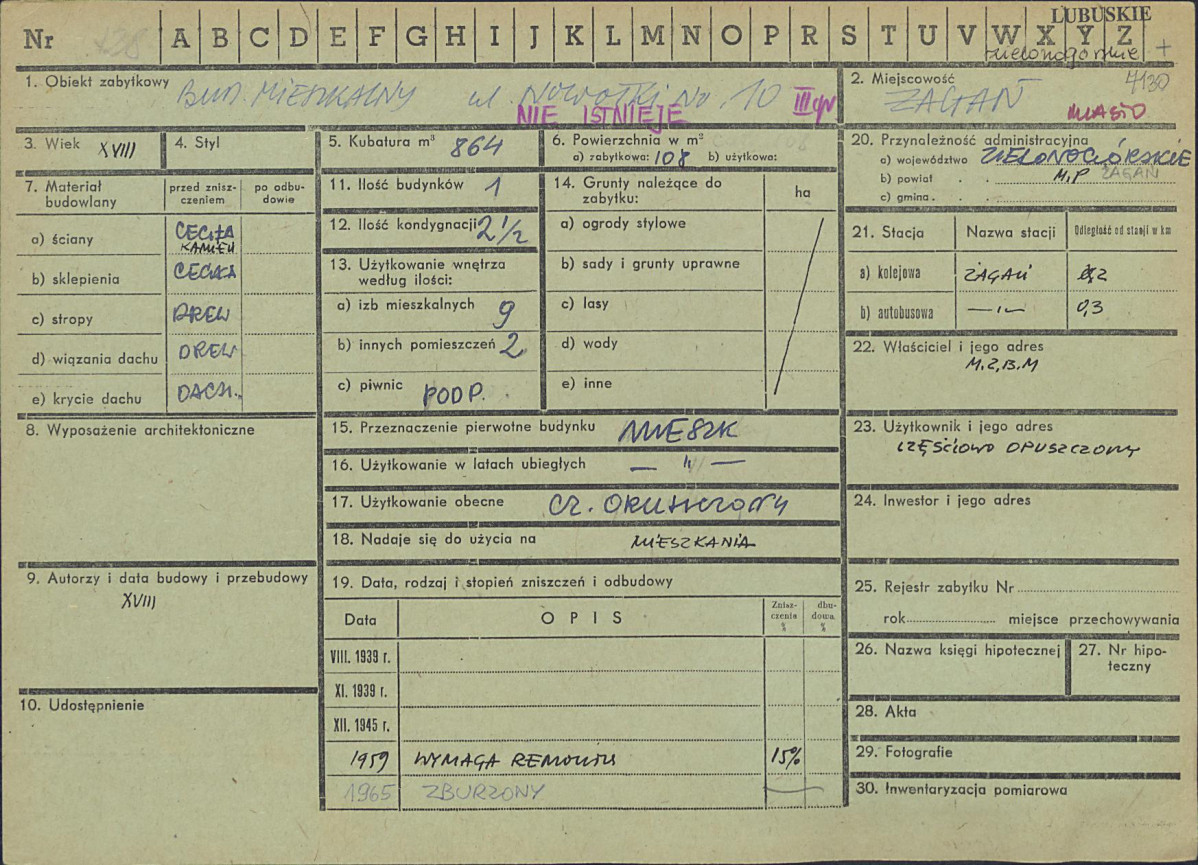 LUBUSKIE
Nr 138 A B C D E F G H I J K L M N O P R S T U V W X Y Z +
zielonogórskie
1. Obiekt zabytkowy BUD. MIESZKALNY ul. NOWOTKI No. 10 III gr
NIE ISTNIEJE
2. Miejscowość 4130
ŻAGAŃ
MIASTO
3. Wiek XVIII
4. Styl
5. Kubatura m³ 864
6. Powierzchnia w m²
a) zabytkowa: 108 b) użytkowa:
7. Materiał budowlany
przed zniszczeniem
po odbudowie
a) ściany CEGŁA KAMIEŃ
b) sklepienia CEGŁA
c) stropy DREW
d) wiązania dachu DREW
e) krycie dachu DACH.
8. Wyposażenie architektoniczne
9. Autorzy i data budowy i przebudowy
XVIII
10. Udostępnienie
11. Ilość budynków 1
12. Ilość kondygnacji 2 1/2
13. Użytkowanie wnętrza
według ilości:
a) izb mieszkalnych 9
b) innych pomieszczeń 2
c) piwnic PODP.
14. Grunty należące do
zabytku:
ha
a) ogrody stylowe
b) sady i grunty uprawne
c) lasy
d) wody
e) inne
15. Przeznaczenie pierwotne budynku MIESZK
16. Użytkowanie w latach ubiegłych — " —
17. Użytkowanie obecne CZ. OPUSZCZONY
18. Nadaje się do użycia na MIESZKANIA
19. Data, rodzaj i stopień zniszczeń i odbudowy
Data OPIS Zniszczenie % dbudowa %
VIII. 1939 r.
XI. 1939 r.
XII. 1945 r.
1959 WYMAGA REMONTU 15%
1965 ZBURZONY
20. Przynależność administracyjna
a) województwo ZIELONOGÓRSKIE
b) powiat M.P ŻAGAŃ
c) gmina
21. Stacja Nazwa stacji Odległość od stacji w km
a) kolejowa ŻAGAŃ 0,2
b) autobusowa — " — 0,3
22. Właściciel i jego adres
M.Z.B.M
23. Użytkownik i jego adres
CZĘŚCIOWO OPUSZCZONY
24. Inwestor i jego adres
25. Rejestr zabytku Nr
rok miejsce przechowywania
26. Nazwa księgi hipotecznej
27. Nr hipoteczny
28. Akta
29. Fotografie
30. Inwentaryzacja pomiarowa